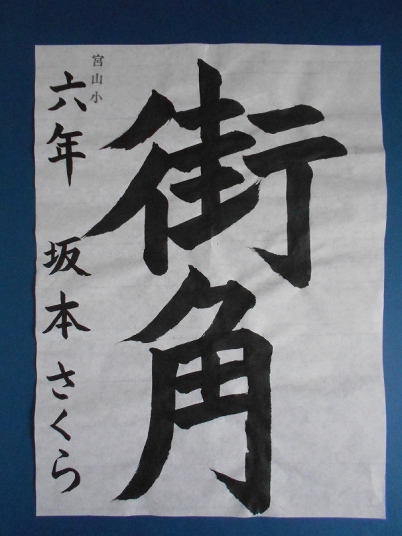 街角
宮山小
六年 坂本さくら